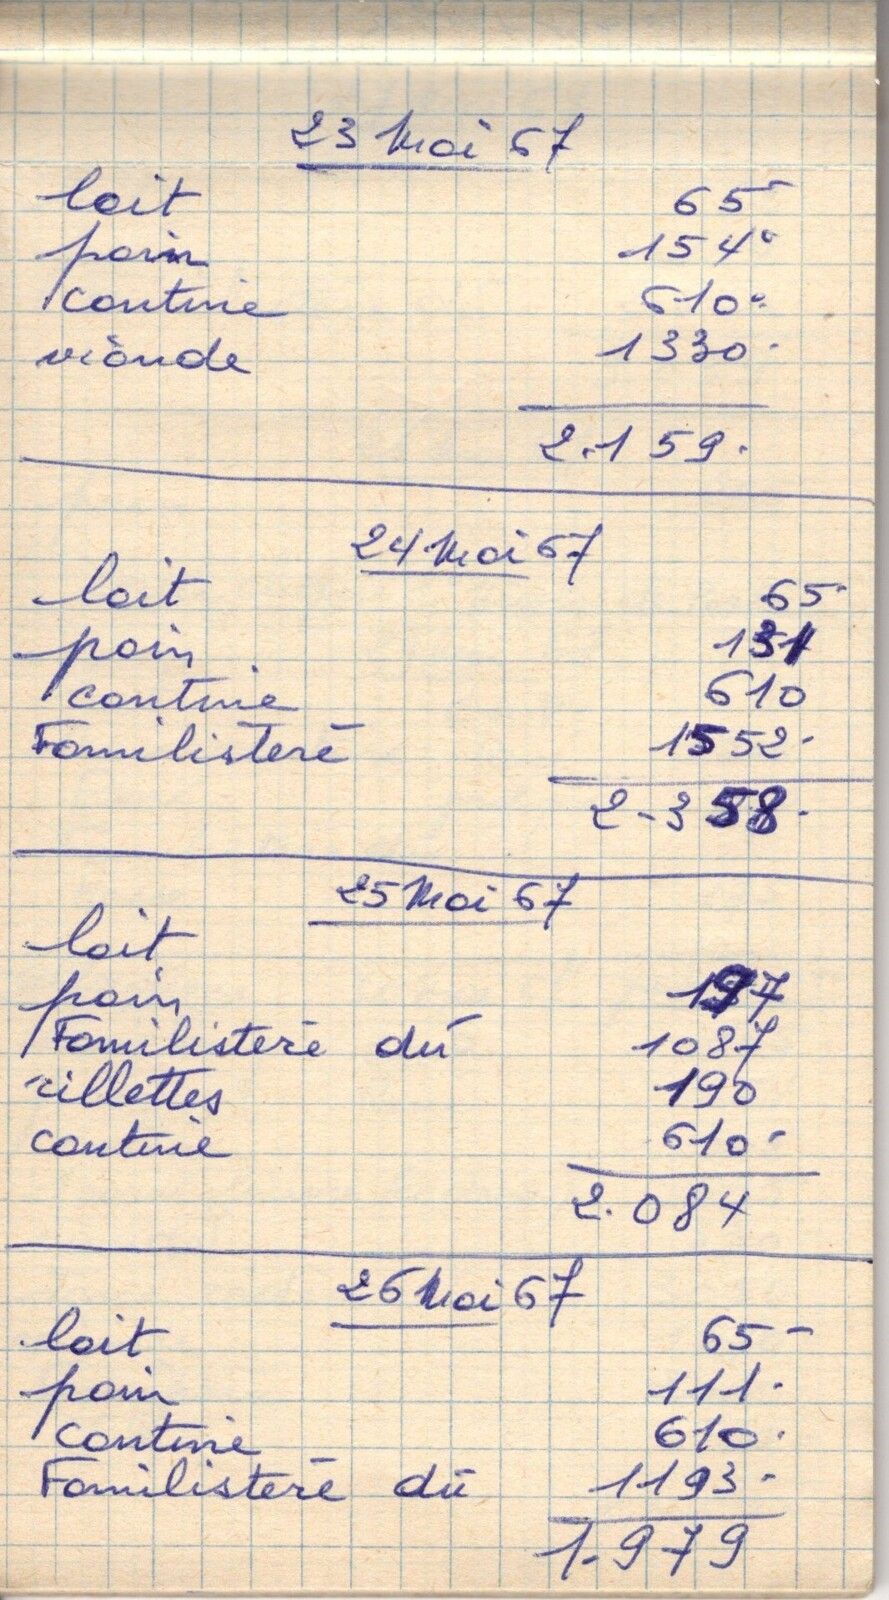 23 Mai 67
lait 65
pain 154
cantine 610
viande 1330
2.159
24 Mai 67
lait 65
pain 131
cantine 610
Familistère 1552
2.358
25 Mai 67
lait
pain 197
Familistère dû 1087
rillettes 190
cantine 610
2.084
26 Mai 67
lait 65
pain 111
cantine 610
Familistère dû 1193
1.979